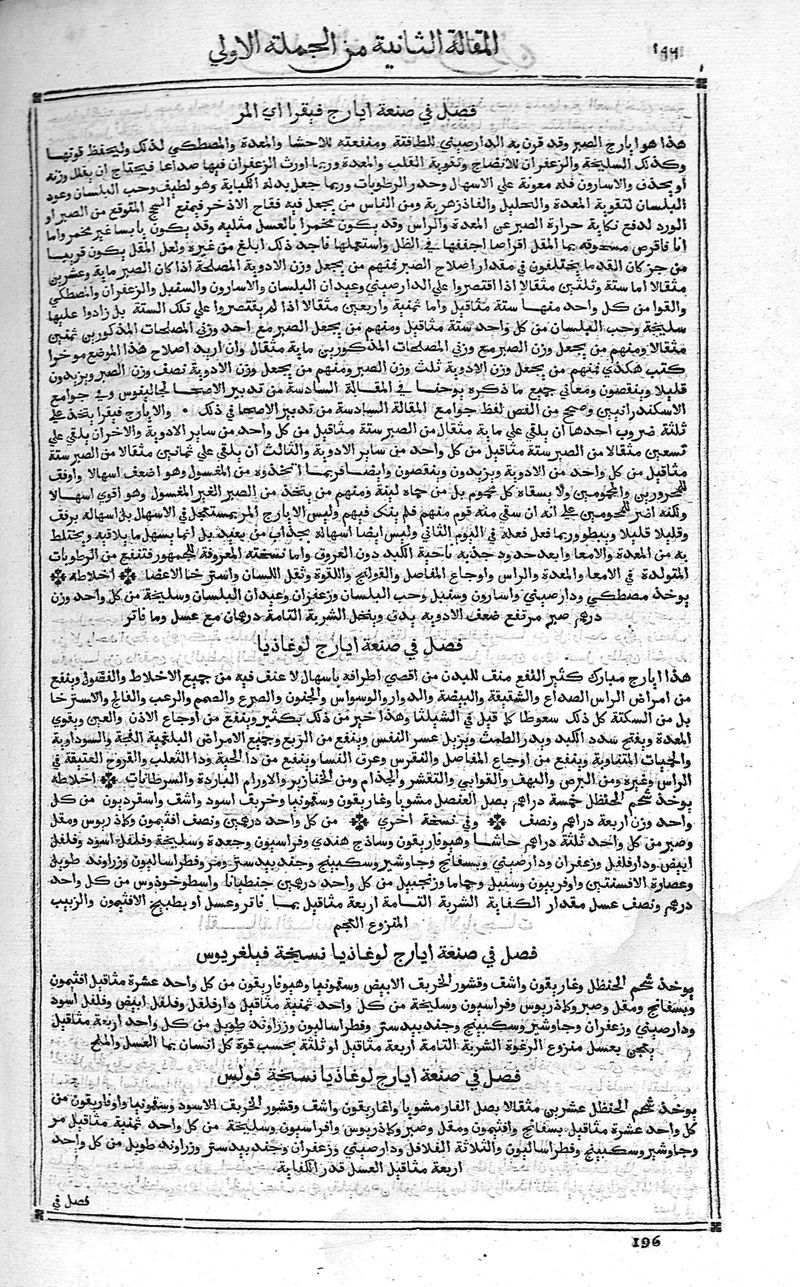 ١٩٦
المقالة الثانية من الجملة الاولي
فصل في صنعة ايارج فيقرا اي المر
هذا هو ايارج الصبر وقد قرن به الدارصيني للطافته ومنفعته للاحشا والمعدة والمصطكي لذلك وليحفظ قوتها
وكذلك السليخة والزعفران للانضاج وتقوية القلب والمعدة وربما اورث الزعفران فيها صداعا فيحتاج ان يقلل وزنه
او يحذف والاسارون فله معونة علي الاسهال وحدر الرطوبات وربما جعل بدله الكبابة وهو لطيف وحب البلسان وعود
البلسان لتقوية المعدة والتحليل والفاذزهرية ومن الناس من يجعل فيه فقاح الاذخر فيمنع السحج المتوقع من الصبر او
الورد لدفع نكاية حرارة الصبر عن المعدة والراس وقد يكون مخمرا بالعسل مثليه وقد يكون يابسا غير مخمر واما
انا فاقرص مسحوقه بما المقل اقراصا اجففها في الظل واستعملها فاجد ذلك ابلغ من غيره ولعل المقل يكون قريبا
من جز كان القدما يختلفون في مقدار اصلاح الصبر فمنهم من يجعل وزن الادوية المصلحة اذا كان الصبر ماية وعشرين
مثقالا اما ستة وثلثين مثقالا اذا اقتصروا علي الدارصيني وعيدان البلسان والاسارون والسنبل والزعفران والمصطكي
والقوا من كل واحد منها ستة مثاقيل واما ثمنية واربعين مثقالا اذا لم يقتصروا علي تلك الستة بل زادوا عليها
سليخة وحب البلسان من كل واحد ستة مثاقيل ومنهم من يجعل الصبر مع احد وزني المصلحات المذكورين ثمنين
مثقالا ومنهم من يجعل وزن الصبر مع وزني المصلحات المذكورين ماية مثقال وان اريد اصلاح هذا الموضع موخرا
كتب هكذي فمنهم من يجعل وزن الادوية ثلث وزن الصبر ومنهم من يجعل وزن الادوية نصف وزن الصبر ويزيدون
قليلا وينقصون ومعاني جميع ما ذكره يوحنا في المقالة السادسة من تدبير الاصحا لجالينوس وفي جوامع
الاسكندرانيين وصحح من الفص لفظ جوامع المقالة السادسة من تدبير الاصحا في ذلك ۰ والايارج فيقرا يتخذ علي
ثلثة ضروب احدها ان يلقي علي ماية مثقال من الصبر ستة مثاقيل من كل واحد من ساير الادوية والاخران يلقي علي
تسعين مثقالا من الصبر ستة مثاقيل من كل واحد من ساير الادوية والثالث ان يلقي علي ثمانين مثقالا من الصبر ستة
مثاقيل من كل واحد من الادوية ويزيدون وينقصون وايضا فربما اتخذوه من المغسول وهو اضعف اسهالا واوفق
للمحرورين والمحمومين ولا يسقاه كل محموم بل من حماه لينة ومنهم من يتخذ من الصبر الغير المغسول وهو اقوي اسهالا
ولكنه اضر للمحمومين علي انه ان سقي منه قوم منهم فلم ينك فيهم وليس الايارج المر يستعجل في الاسهال بل اسهاله برفق
وقليلا قليلا وببطو وربما فعل فعله في اليوم الثاني وليس ايضا اسهاله بجذاب من بعيد بل انما يسهل ما يلاقيه ويختلط
به من المعدة والامعا وابعد حدود جذبه ناحية الكبد دون العروق واما نسخته المعروفة للجمهور فتنفع من الرطوبات
المتولدة في الامعا والمعدة والراس واوجاع المفاصل والقولنج واللقوة وثقل اللسان واسترخا الاعضا ❉ اخلاطه ❉
يوخذ مصطكي ودارصيني واسارون وسنبل وحب البلسان وزعفران وعيدان البلسان وسليخة من كل واحد وزن
درهم صبر مرتفع ضعف الادوية يدق وينخل الشربة التامة درهمان مع عسل وما فاتر
فصل في صنعة ايارج لوغاذيا
هذا ايارج مبارك كثير النفع منق للبدن من اقصي اطرافه باسهال لا عنف فيه من جميع الاخلاط والفضول وينفع
من امراض الراس الصداع والشقيقة والبيضة والدوار والوسواس والجنون والصرع والصمم والرعب والفالج والاسترخا
بل من السكتة كل ذلك سعوطا كما قيل في الشيلثا وهذا خير من ذلك بكثير وينفع من اوجاع الاذن والعين ويقوي
المعدة ويفتح سدد الكبد ويدر الطمث ويزيل عسر النفس وينفع من الربع وجميع الامراض البلغمية الفجة والسوداوية
والحميات المتطاولة وينفع من اوجاع المفاصل والنقرس وعرق النسا وينفع من دا الحية ودا الثعلب والقروح العتيقة في
الراس وغيره ومن البرص والبهق والقوابي والتقشر والجذام ومن الخنازير والاورام الباردة والسرطانات ❉ اخلاطه
يوخذ شحم الحنظل خمسة دراهم بصل العنصل مشويا وغاريقون وسقمونيا وخربق اسود واشق واسقرديون من كل
واحد وزن اربعة دراهم ونصف ❉ وفي نسخة اخري ❉ من كل واحد درهمين ونصف افتيمون وكماذريوس ومقل
وصبر من كل واحد ثلثة دراهم حاشا وهيوفاريقون وساذج هندي وفراسيون وجعدة وسليخة وفلفل اسود وفلفل
ابيض ودارفلفل وزعفران ودارصيني وبسفانج وجاوشير وسكبينج وجندبيدستر ومر وفطراساليون وزراوند طويل
وعصارة الافسنتين واوفربيون وسنبل وحماما وزنجبيل من كل واحد درهمين جنطيانا واسطوخوذوس من كل واحد
درهم ونصف عسل مقدار الكفاية الشربة التامة اربعة مثاقيل بما فاتر وعسل او بطبيخ الافتيمون والزبيب
المنزوع العجم
فصل في صنعة ايارج لوغاذيا نسخة فيلغريوس
يوخذ شحم الحنظل وغاريقون واشق وقشور الخربق الابيض وسقمونيا وهيوفاريقون من كل واحد عشرة مثاقيل افتيمون
وبسفانج ومقل وصبر وكماذريوس وفراسيون وسليخة من كل واحد ثمنية مثاقيل دارفلفل وفلفل ابيض وفلفل اسود
ودارصيني وزعفران وجاوشير وسكبينج وجندبيدستر وفطراساليون وزراوند طويل من كل واحد اربعة مثاقيل
يعجن بعسل منزوع الرغوة الشربة التامة اربعة مثاقيل او ثلثة بحسب قوة كل انسان بما العسل والملح
فصل في صنعة ايارج لوغاذيا نسخة فولس
يوخذ شحم الحنظل عشرين مثقالا بصل الفار مشويا واغاريقون واشق وقشور الخربق الاسود وسقمونيا واوفاريقون من
كل واحد عشرة مثاقيل بسفانج وافتيمون ومقل وصبر وكماذريوس وافراسيون وسليخة من كل واحد ثمنية مثاقيل مر
وجاوشير وسكبينج وفطراساليون والثلاثة الفلافل ودارصيني وزعفران وجندبيدستر وزراوند طويل من كل واحد
اربعة مثاقيل العسل قدر الكفاية.
فصل في
196